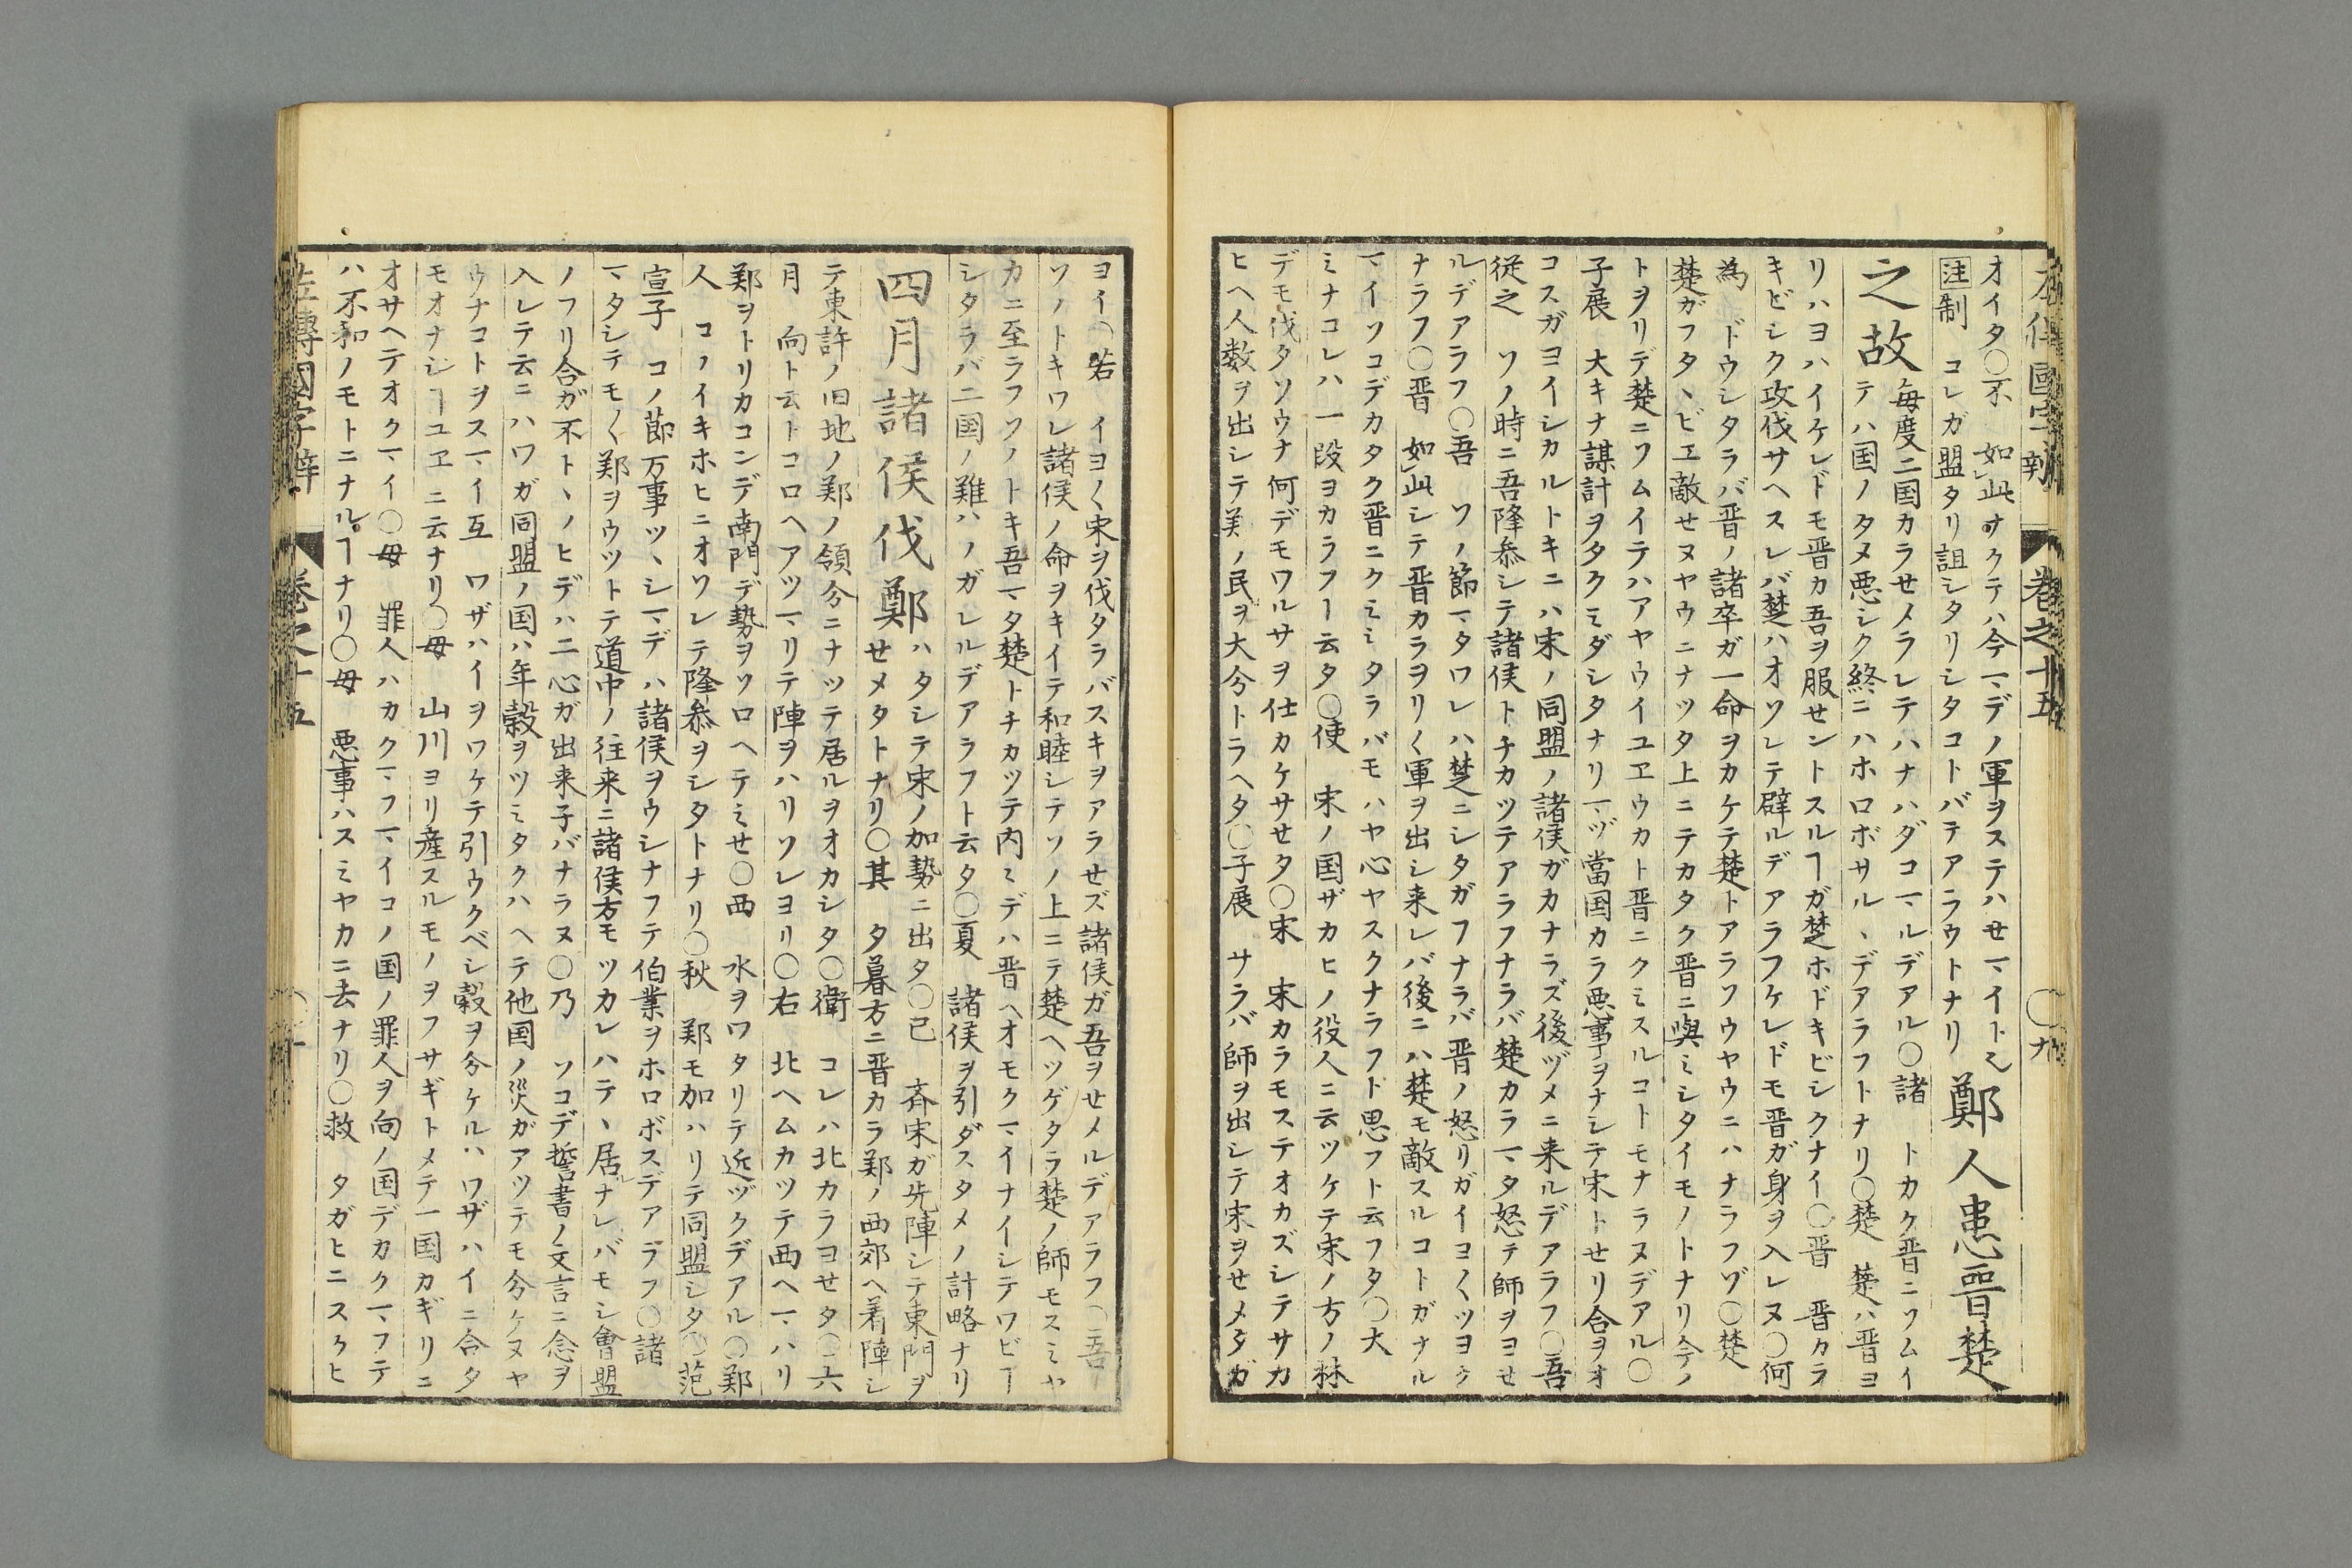 左傳國字辯 卷之十五 〇九
オイタ〇不 如此オクテハ今マデノ軍ヲステハセマイト也
注制 コレガ盟タリ詛シタリシタコトバテアラウトナリ
鄭人患晋楚
之故
毎度二国カラセメラレテハナハダコマルデアル〇諸 トカク晋ニソムイ
テハ国ノタメ悪シク終ニハホロボサルヽデアラフトナリ〇楚 楚ハ晋ヨ
リハヨハイケレドモ晋カ吾ヲ服セントスルヿガ楚ホドキビシクナイ〇晋 晋カラ
キビシク攻伐サヘスレバ楚ハオソレテ辟ルデアラフケレドモ晋ガ身ヲ入レヌ〇何
為 ドウシタラバ晋ノ諸卒ガ一命ヲカケテ楚トアラソウヤウニハナラフゾ〇楚
楚ガフタヽビエ敵セヌヤウニナツタ上ニテカタク晋ニ與ミシタイモノトナリ今ノ
トヲリデ楚ニソムイテハアヤウイユヱウカト晋ニクミスルコトモナラヌデアル〇
子展 大キナ謀計ヲタクミダシタナリマヅ當国カラ悪事ヲナシテ宋トセリ合ヲオ
コスガヨイシカルトキニハ宋ノ同盟ノ諸侯ガカナラズ後ヅメニ来ルデアラフ〇吾
従之 ソノ時ニ吾降参シテ諸侯トチカツテアラフナラバ楚カラマタ怒テ師ヲヨセ
ルデアラフ〇吾 ソノ節マタワレハ楚ニシタガフナラバ晋ノ怒リガイヨ〱ツヨク
ナラフ〇晋 如此シテ晋カラヲリ〱軍ヲ出シ来レバ後ニハ楚モ敵スルコトガナル
マイソコデカタク晋ニクミシタラバモハヤ心ヤスクナラフト思フト云フタ〇大
ミナコレハ一段ヨカラフト云タ〇使 宋ノ国ザカヒノ役人ニ云ツケテ宋ノ方ノ林
デモ伐タソウナ何デモワルサヲ仕カケサセタ〇宋 宋カラモステオカズシテサカ
ヒヘ人数ヲ出シテ美ノ民ヲ大分トラヘタ〇子展 サラバ師ヲ出シテ宋ヲセメタガ
ヨイ〇若 イヨ〱宋ヲ伐タラバスキヲアラセズ諸侯ガ吾ヲセメルデアラフ〇吾
ソノトキワレ諸侯ノ命ヲキイテ和睦シテソノ上ニテ楚ヘツゲタラ楚ノ師モスミヤ
カニ至ラフソノトキ吾マタ楚トチカツテ内ミデハ晋ヘオモクマイナイシテワビヿ
シタラバ二国ノ難ハノガレルデアラフト云タ〇夏 諸侯ヲ引ダスタメノ計略ナリ
四月諸侯伐鄭
ハタシテ宋ノ加勢ニ出タ〇己 斉宋ガ先陣シテ東門ヲ
セメタトナリ〇其 夕暮方ニ晋カラ鄭ノ西郊ヘ着陣シ
テ東許ノ旧地ノ鄭ノ領分ニナツテ居ルヲオカシタ〇衛 コレハ北カラヨセタ〇六
月 向ト云トコロヘアツマリテ陣ヲハリソレヨリ〇右 北ヘムカツテ西ヘマハリ
鄭ヲトリカコンデ南門デ勢ヲソロヘテミセ〇西 水ヲワタリテ近ヅクデアル〇鄭
人 コノイキホヒニオソレテ降参ヲシタトナリ〇秋 鄭モ加ハリテ同盟シタ〇范
宣子 コノ節万事ツヽシマデハ諸侯ヲウシナフテ伯業ヲホロボスデアラフ〇諸
マタシテモ〱鄭ヲウツトテ道中ノ往来ニ諸侯方モツカレハテヽ居ルナレバモシ會盟
ノフリ合ガ不トヽノヒデハ二心ガ出来子バナラヌ〇乃 ソコデ誓書ノ文言ニ念ヲ
入レテ云ニハワガ同盟ノ国ハ年穀ヲツミタクハヘテ他国ノ災ガアツテモ分ケヌヤ
ウナコトヲスマイ互 ワザハイヲワケテ引ウクベシ穀ヲ分ケルハワザハイニ合タ
モオナシヿユヱニ云ナリ〇毋 山川ヨリ産スルモノヲフサギトメテ一国カギリニ
オサヘテオクマイ〇毋 罪人ハカクマフマイコノ国ノ罪人ヲ向ノ国デカクマフテ
ハ不和ノモトニナルヿナリ〇毋 悪事ハスミヤカニ去ナリ〇救 タガヒニスケヒ
左傳國字辯 卷之十五